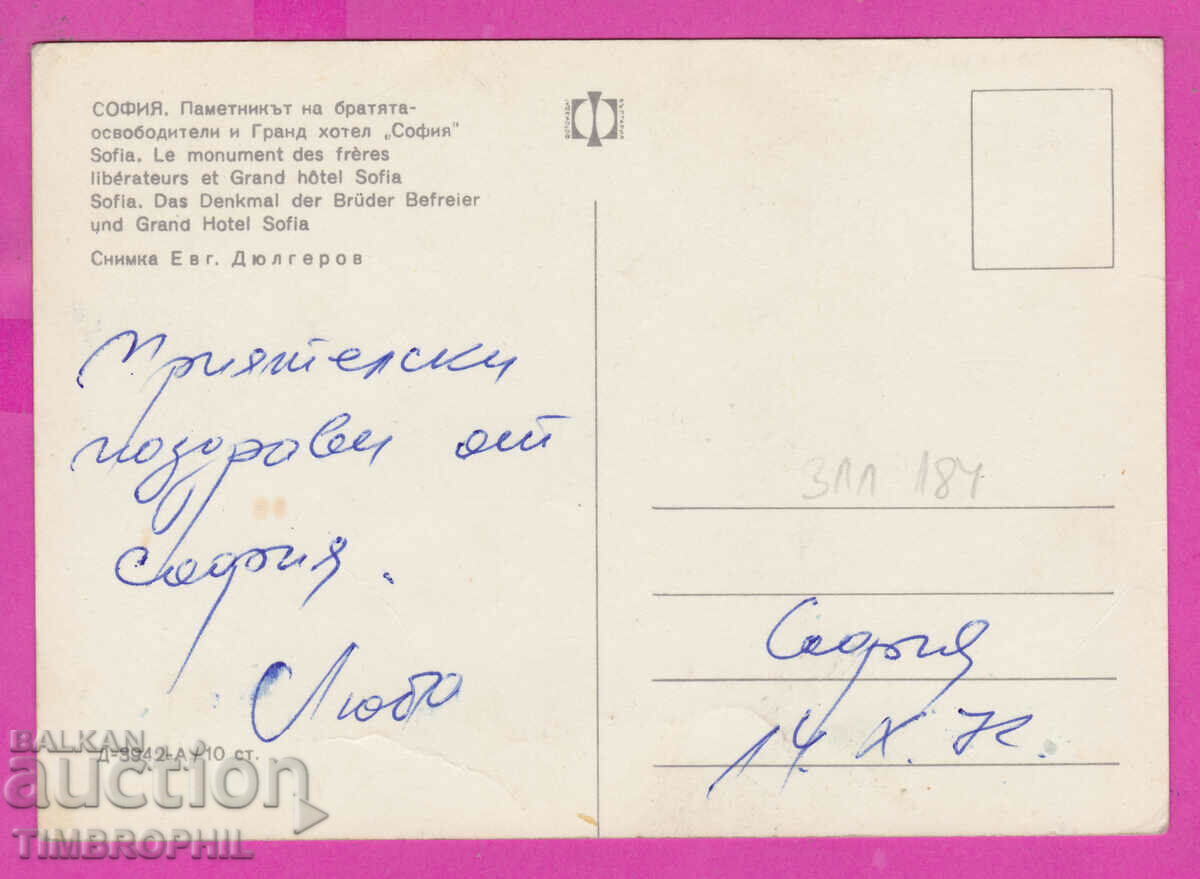 СОФИЯ. Паметникът на братята-
освободители и Гранд хотел „София"
Sofia. Le monument des frères
libérateurs et Grand hôtel Sofia
Sofia. Das Denkmal der Brüder Befreier
und Grand Hotel Sofia
Снимка Евг. Дюлгеров
Приятелски
поздрави от
София.
Любо
Д-3942-А/10 ст.
ЗЛЛ 184
София
14. X.
BALKAN
auction
TIMBROPHIL